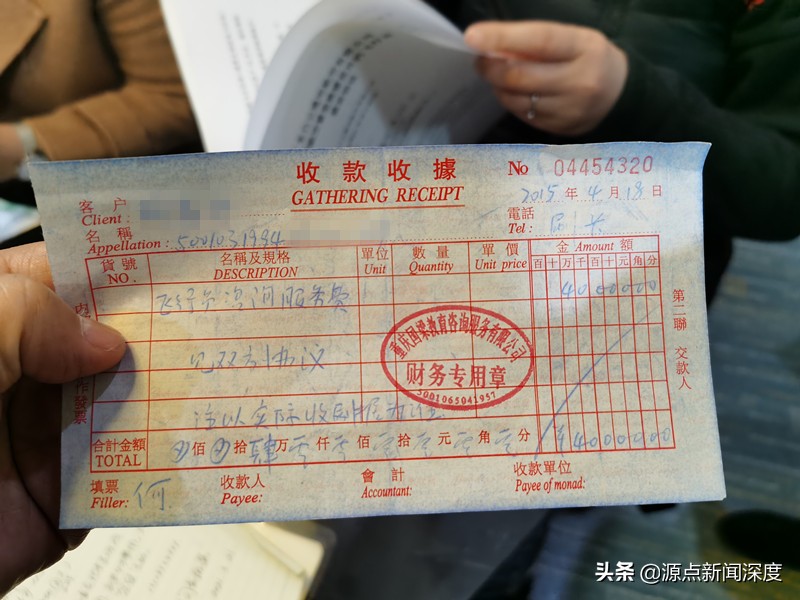 收款收據
GATHERING RECEIPT
No 04454320
2015 年 4 月 18 日
客户
Client :
電話
Tel :
名稱
Appellation : 5001031984
貨號
NO.
名稱及規格
DESCRIPTION
單位
Unit
數量
Quantity
單價
Unit price
金 Amount 額
百 十 万 千 百 十 元 角 分
咨询服务费
4000000
见双方协议
注以实际收到
重庆国操教育咨询服务有限公司
财务专用章
5001065041957
第二聯 交款人
合計金額
TOTAL
佰 拾 肆 万 零 仟 零 佰 零 拾 零 元 零 角 零 分
¥4000000
填票
Filler: 何
收款人
Payee:
會計
Accountant:
收款單位
Payee of monad:
头条 @源点新闻深度